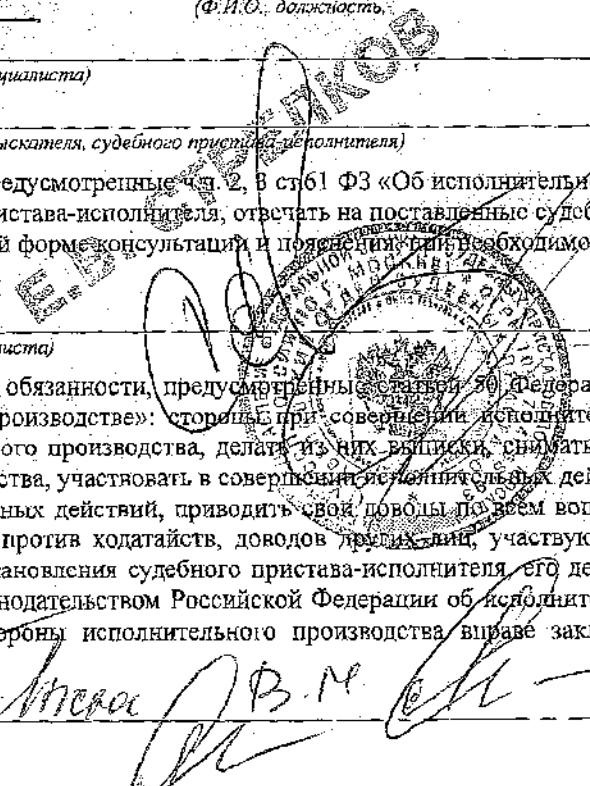 (Ф.И.О., должность,
циалиста)
ыскателя, судебного пристава-исполнителя)
Е.В. СТРЕЛКОВ
едусмотренные ч.ч. 2, 3 ст.61 ФЗ «Об исполнительн
истава-исполнителя, отвечать на поставленные судеб
й форме консультации и пояснения, при необходимо
листа)
обязанности, предусмотренные статьей 50 Федера
роизводстве»: стороны при совершении исполните
ого производства, делать из них выписки, снимать
ства, участвовать в совершении исполнительных дей
ных действий, приводить свои доводы по всем воп
против ходатайств, доводов других лиц, участвую
тановления судебного пристава-исполнителя, его де
нодательством Российской Федерации об исполнит
ороны исполнительного производства вправе закл
В.М